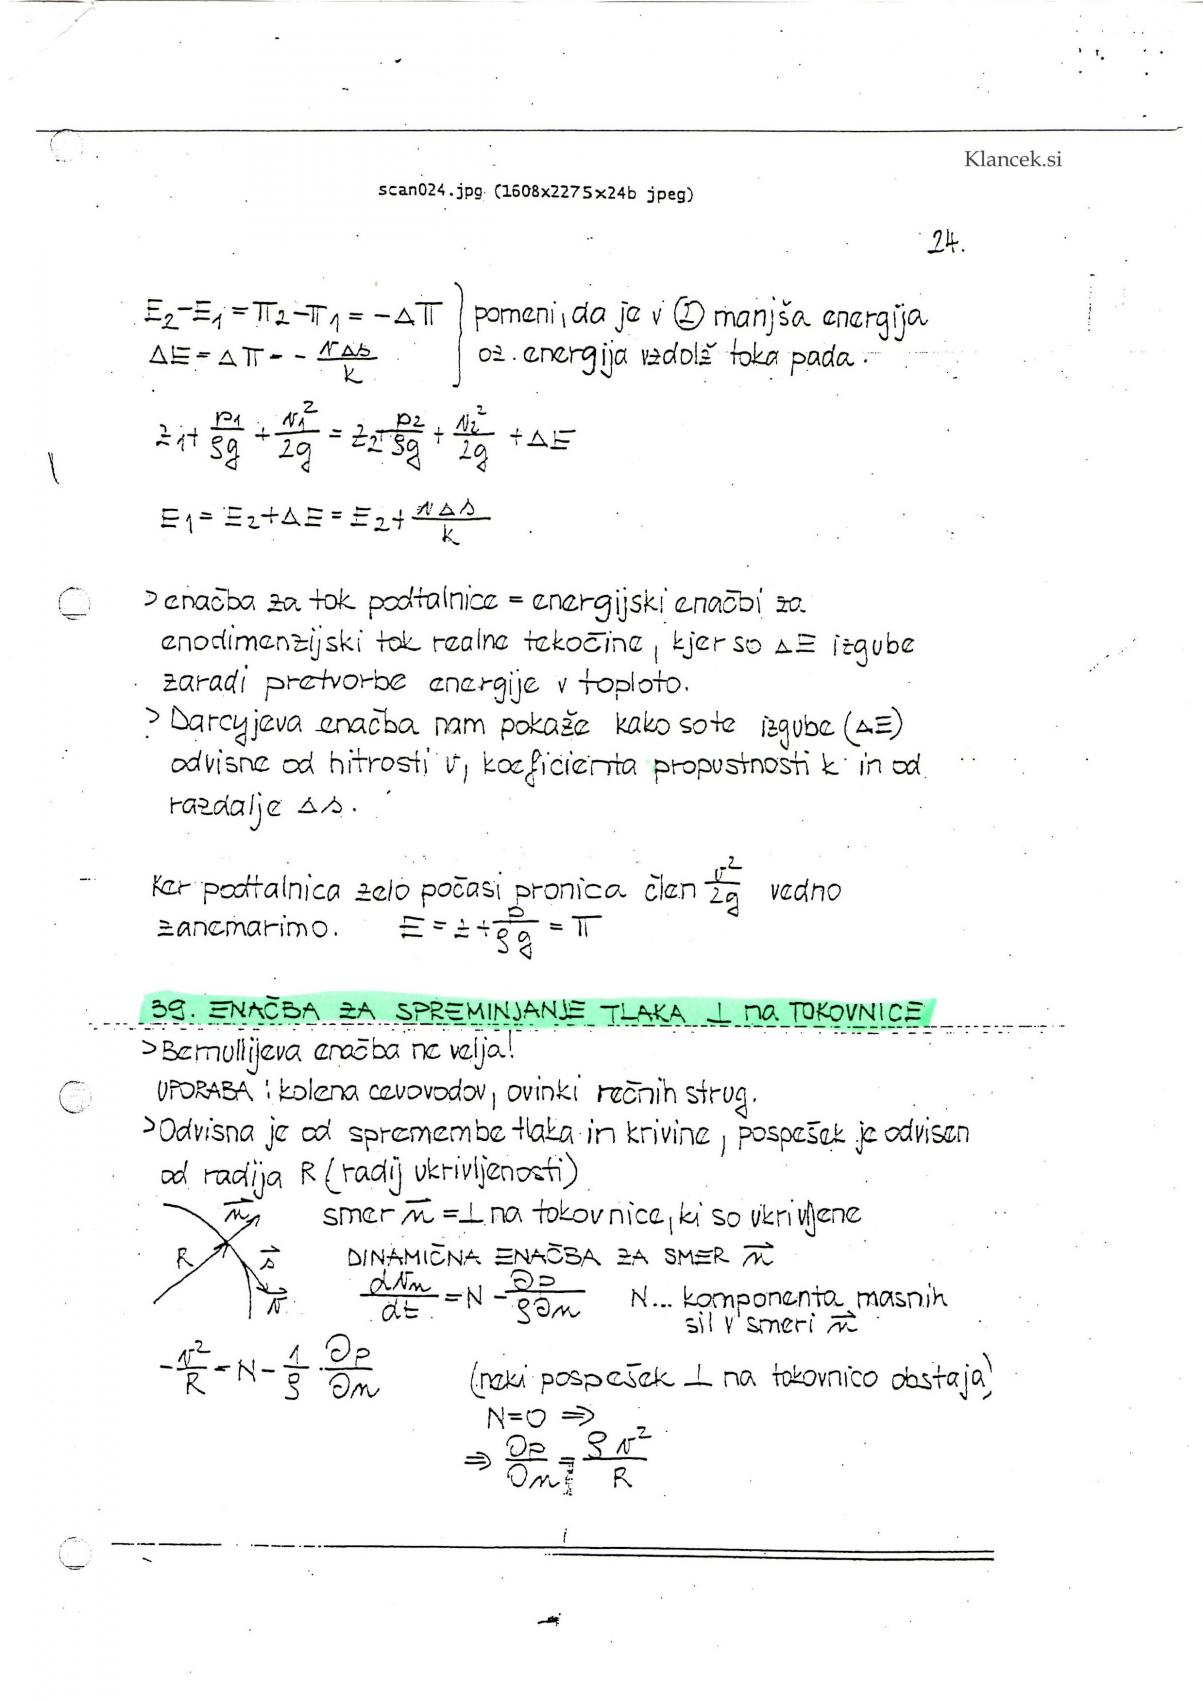 Klancek.si
scan024.jpg (1608x2275x24b jpeg)
24.
E₂-E₁ = π₂-π₁ = -Δπ } pomeni, da je v ② manjša energija
ΔE = Δπ = - vΔs/k } oz. energija vzdolž toka pada.
z₁ + p₁/ρg + v₁²/2g = z₂ + p₂/ρg + v₂²/2g + ΔE
E₁ = E₂+ΔE = E₂ + vΔs/k
> enačba za tok podtalnice = energijski enačbi za
enodimenzijski tok realne tekočine, kjer so ΔE izgube
zaradi pretvorbe energije v toploto.
> Darcyjeva enačba nam pokaže kako so te izgube (ΔE)
odvisne od hitrosti v, koeficienta propustnosti k in od
razdalje Δs.
Ker podtalnica zelo počasi pronica člen v²/2g vedno
zanemarimo. E = z + p/ρg = π
39. ENAČBA ZA SPREMINJANJE TLAKA ⊥ na TOKOVNICE
> Bernullijeva enačba ne velja!
UPORABA: kolena cevovodov, ovinki rečnih strug.
> Odvisna je od spremembe tlaka in krivine, pospešek je odvisen
od radija R (radij ukrivljenosti)
n⃗ smer n⃗ = ⊥ na tokovnice, ki so ukrivljene
R s⃗ DINAMIČNA ENAČBA ZA SMER n⃗
v⃗ dvₙ/dt = N - ∂p/ρ∂n N... komponenta masnih
sil v smeri n⃗
-v²/R = N - 1/ρ · ∂p/∂n (neki pospešek ⊥ na tokovnico obstaja)
N=0 ⇒
⇒ ∂p/∂n = ρv²/R